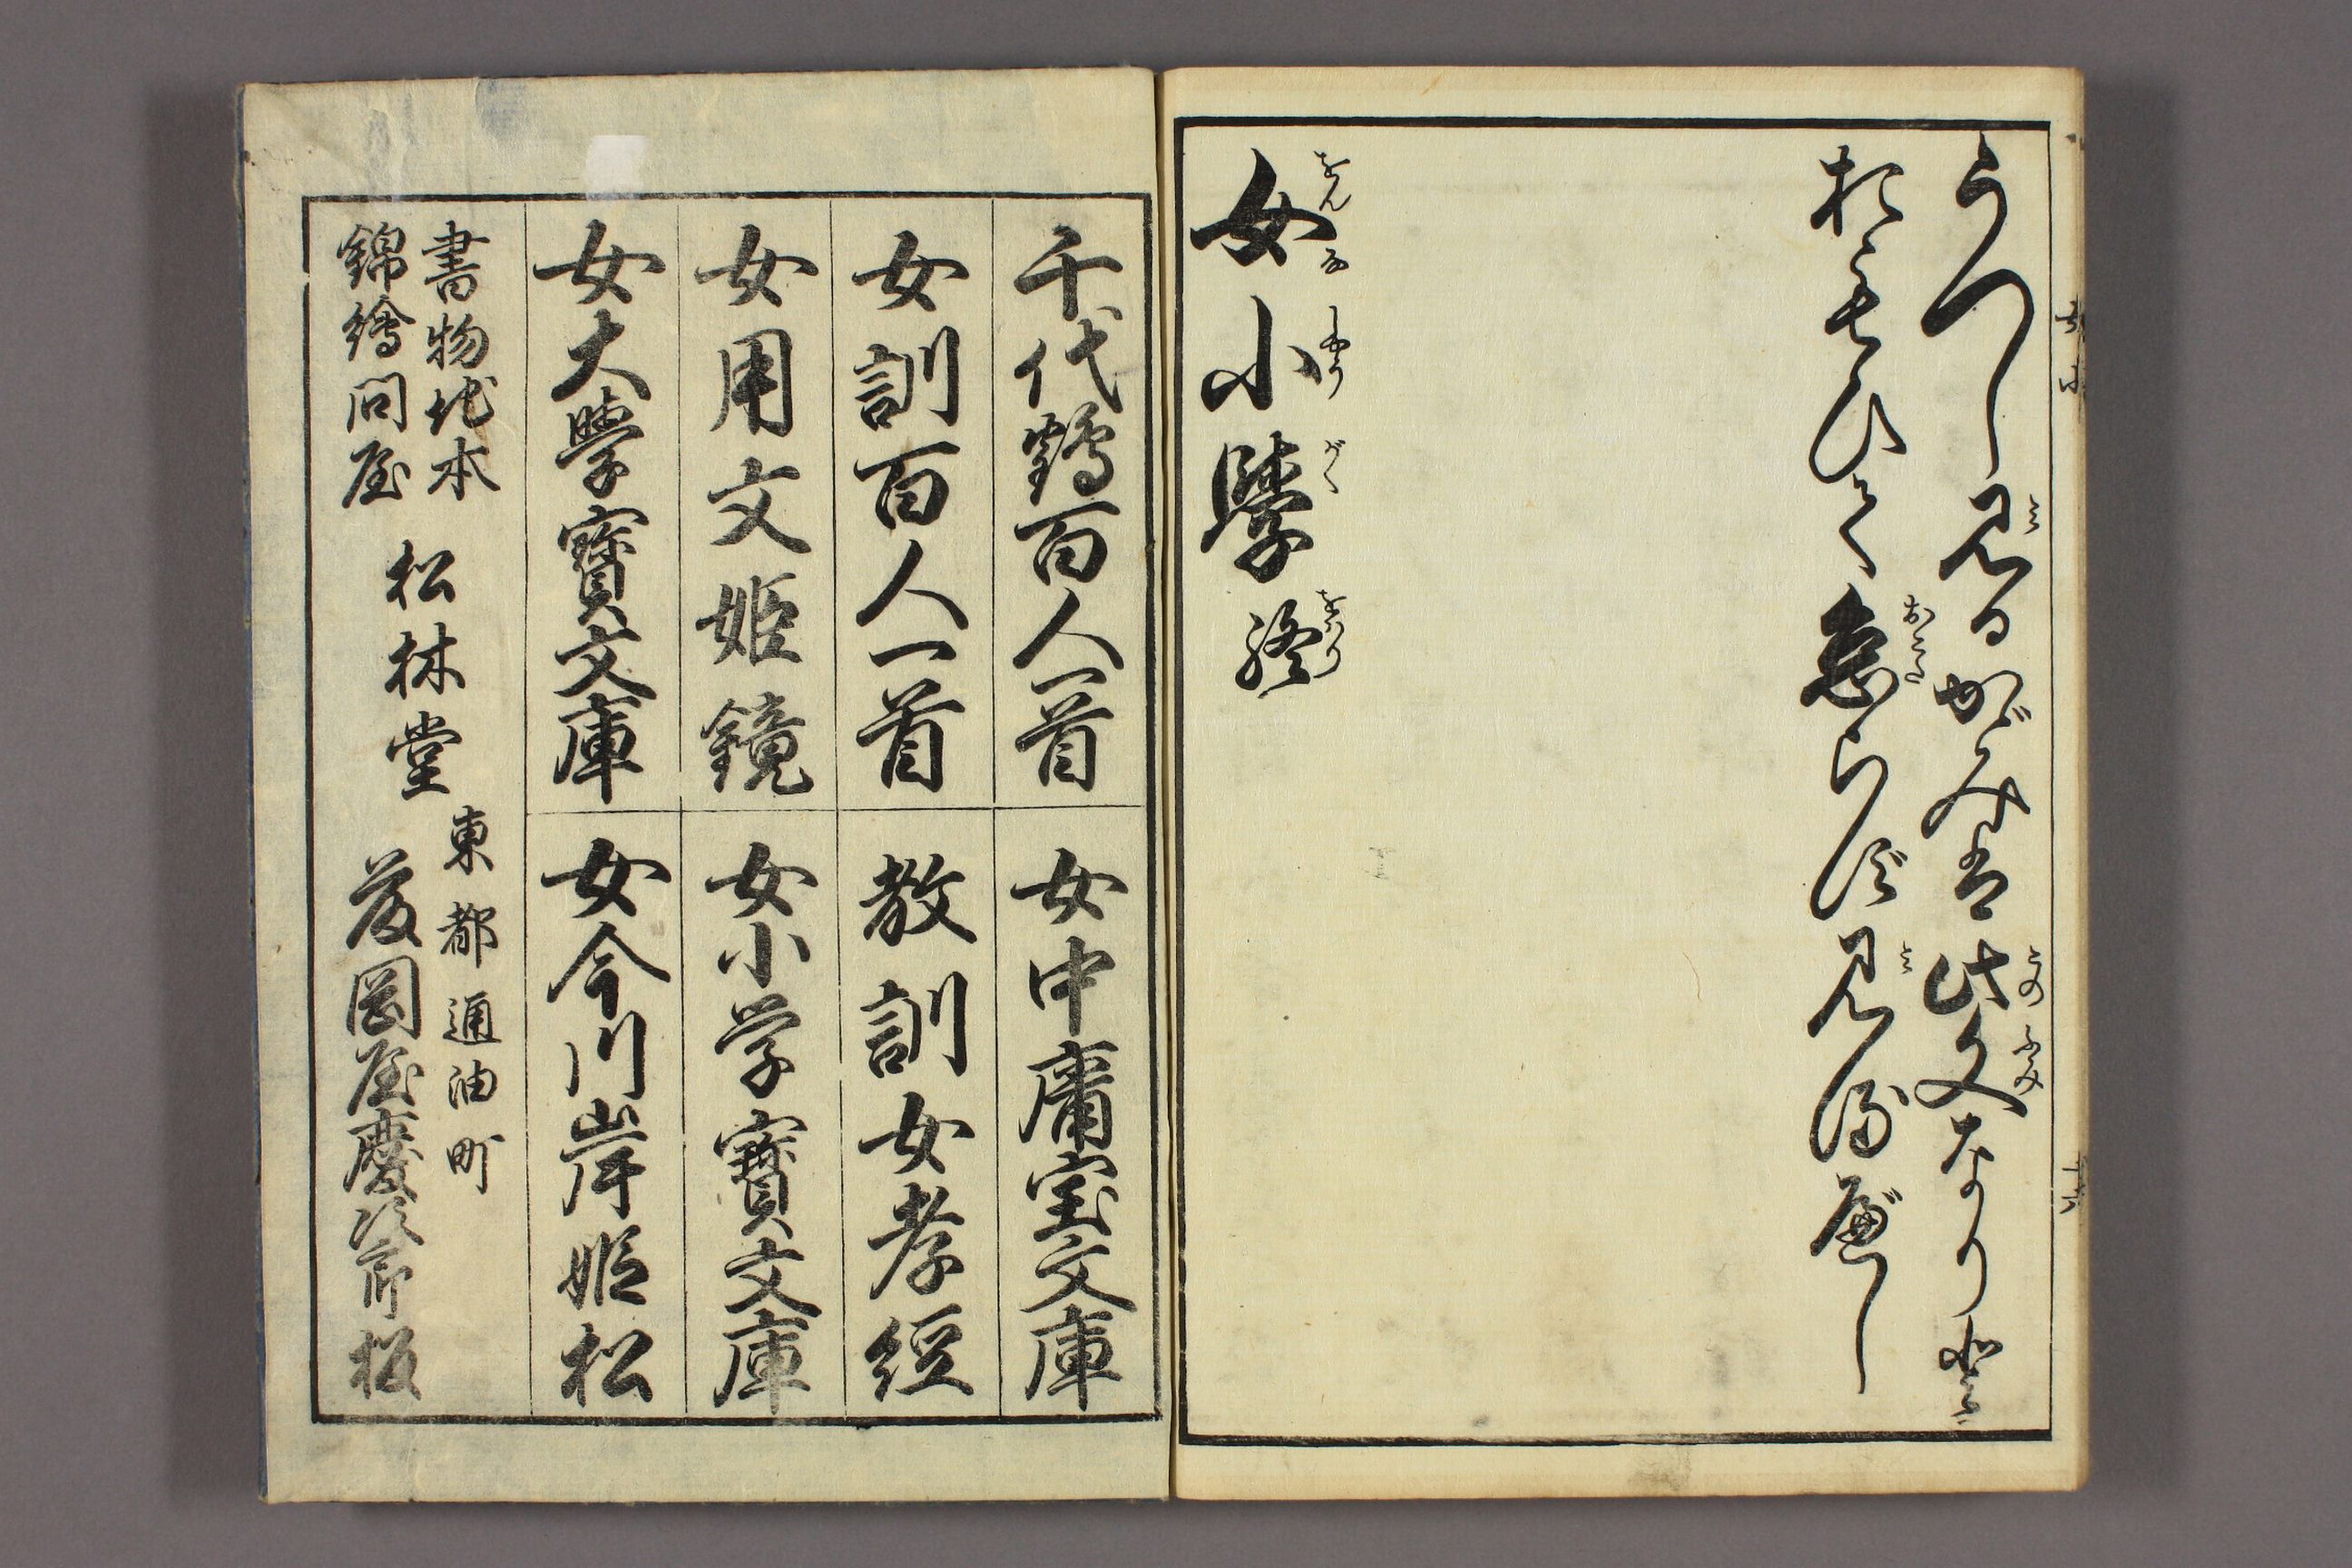 うつし見るかゞみは此文なりと
おもひて怠らず見給べし
女小學終
千代鶴百人一首
女中庸宝文庫
女訓百人一首
教訓女孝經
女用文姫鏡
女小学寳文庫
女大學寳文庫
女今川岸姫松
書物地本
錦繪問屋
松林堂
東都通油町
藤岡屋慶次郎板